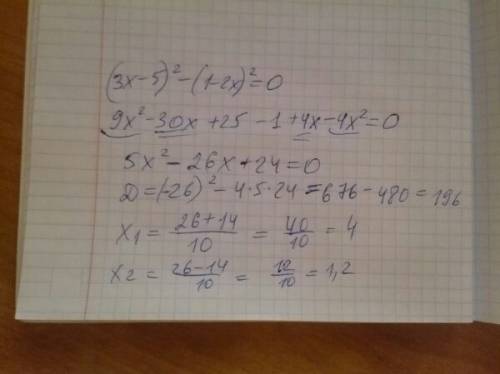 (3x-5)²-(1-2x)²=0
9x²-30x+25-1+4x-4x²=0
5x²-26x+24=0
D=(-26)²-4·5·24=676-480=196
x1=26+14/10=40/10=4
x2=26-14/10=12/10=1,2